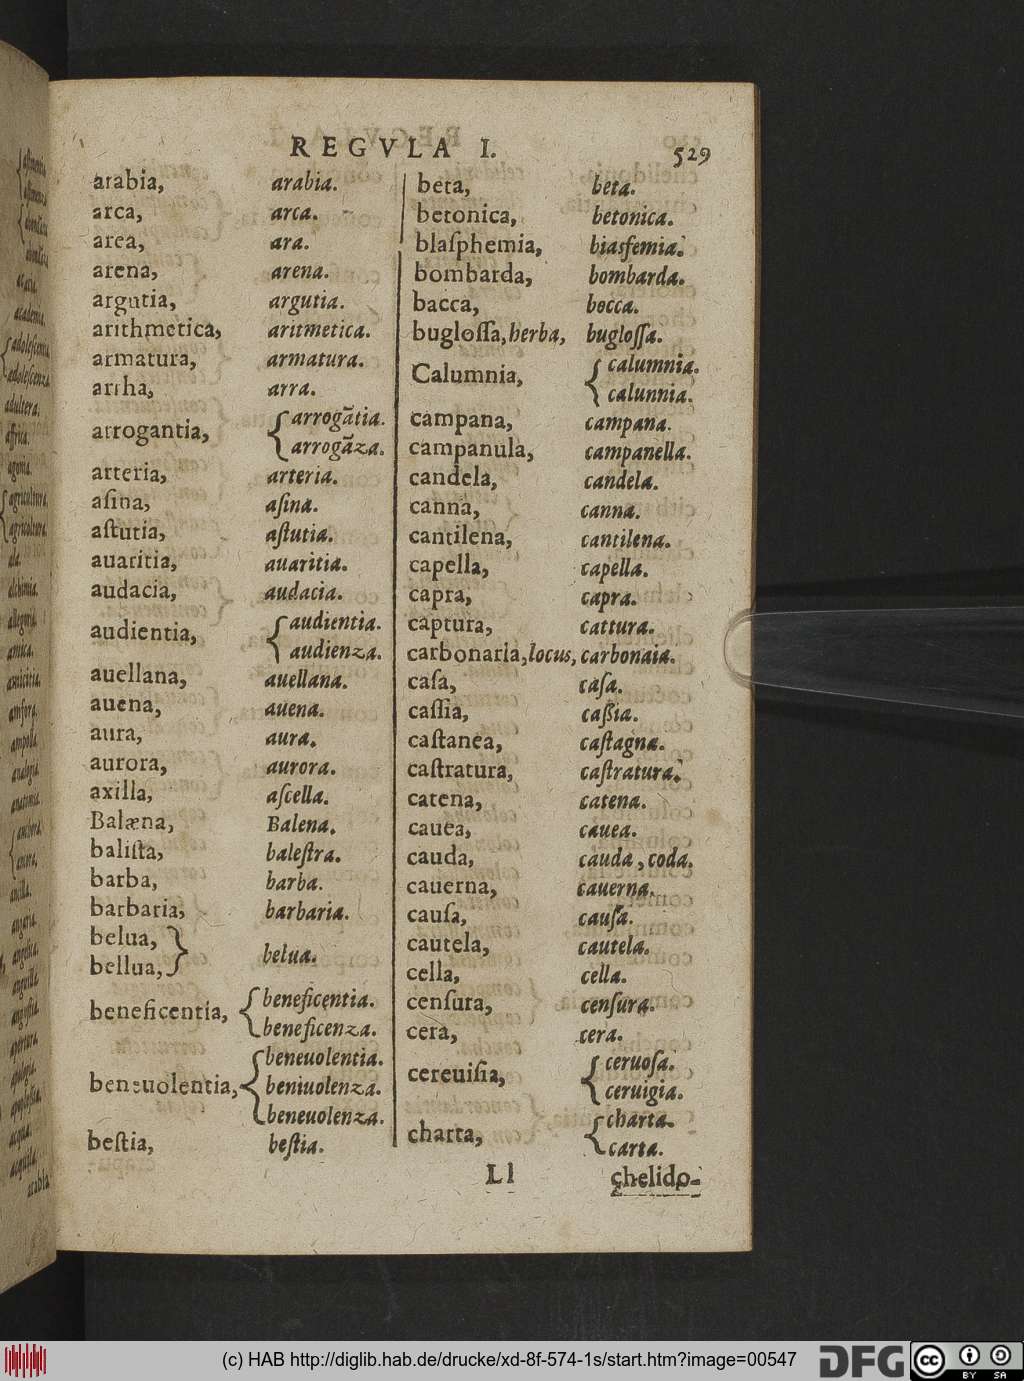 REGVLA I. 529
arabia, arabia.
arca, arca.
area, ara.
arena, arena.
argutia, argutia.
arithmetica, aritmetica.
armatura, armatura.
arrha, arra.
arrogantia, arrogãtia.
arrogãza.
arteria, arteria.
aſina, aſina.
aſtutia, aſtutia.
auaritia, auaritia.
audacia, audacia.
audientia, audientia.
audienza.
auellana, auellana.
auena, auena.
aura, aura.
aurora, aurora.
axilla, aſcella.
Balæna, Balena.
baliſta, baleſtra.
barba, barba.
barbaria, barbaria.
belua,
bellua, belua.
beneficentia, beneficentia.
beneficenza.
beneuolentia, beneuolentia.
beniuolenza.
beneuolenza.
beſtia, beſtia.
beta, beta.
betonica, betonica.
blaſphemia, biasfemia.
bombarda, bombarda.
bacca, bocca.
bugloſſa, herba, bugloſſa.
Calumnia, calumnia.
calunnia.
campana, campana.
campanula, campanella.
candela, candela.
canna, canna.
cantilena, cantilena.
capella, capella.
capra, capra.
captura, cattura.
carbonaria, locus, carbonaia.
caſa, caſa.
caſſia, caßia.
caſtanea, caſtagna.
caſtratura, caſtratura.
catena, catena.
cauea, cauea.
cauda, cauda, coda.
cauerna, cauerna.
cauſa, cauſa.
cautela, cautela.
cella, cella.
cenſura, cenſura.
cera, cera.
cereuiſia, ceruoſa.
ceruigia.
charta, charta.
carta.
Ll chelido-
(c) HAB http://diglib.hab.de/drucke/xd-8f-574-1s/start.htm?image=00547
DFG
cc BY SA